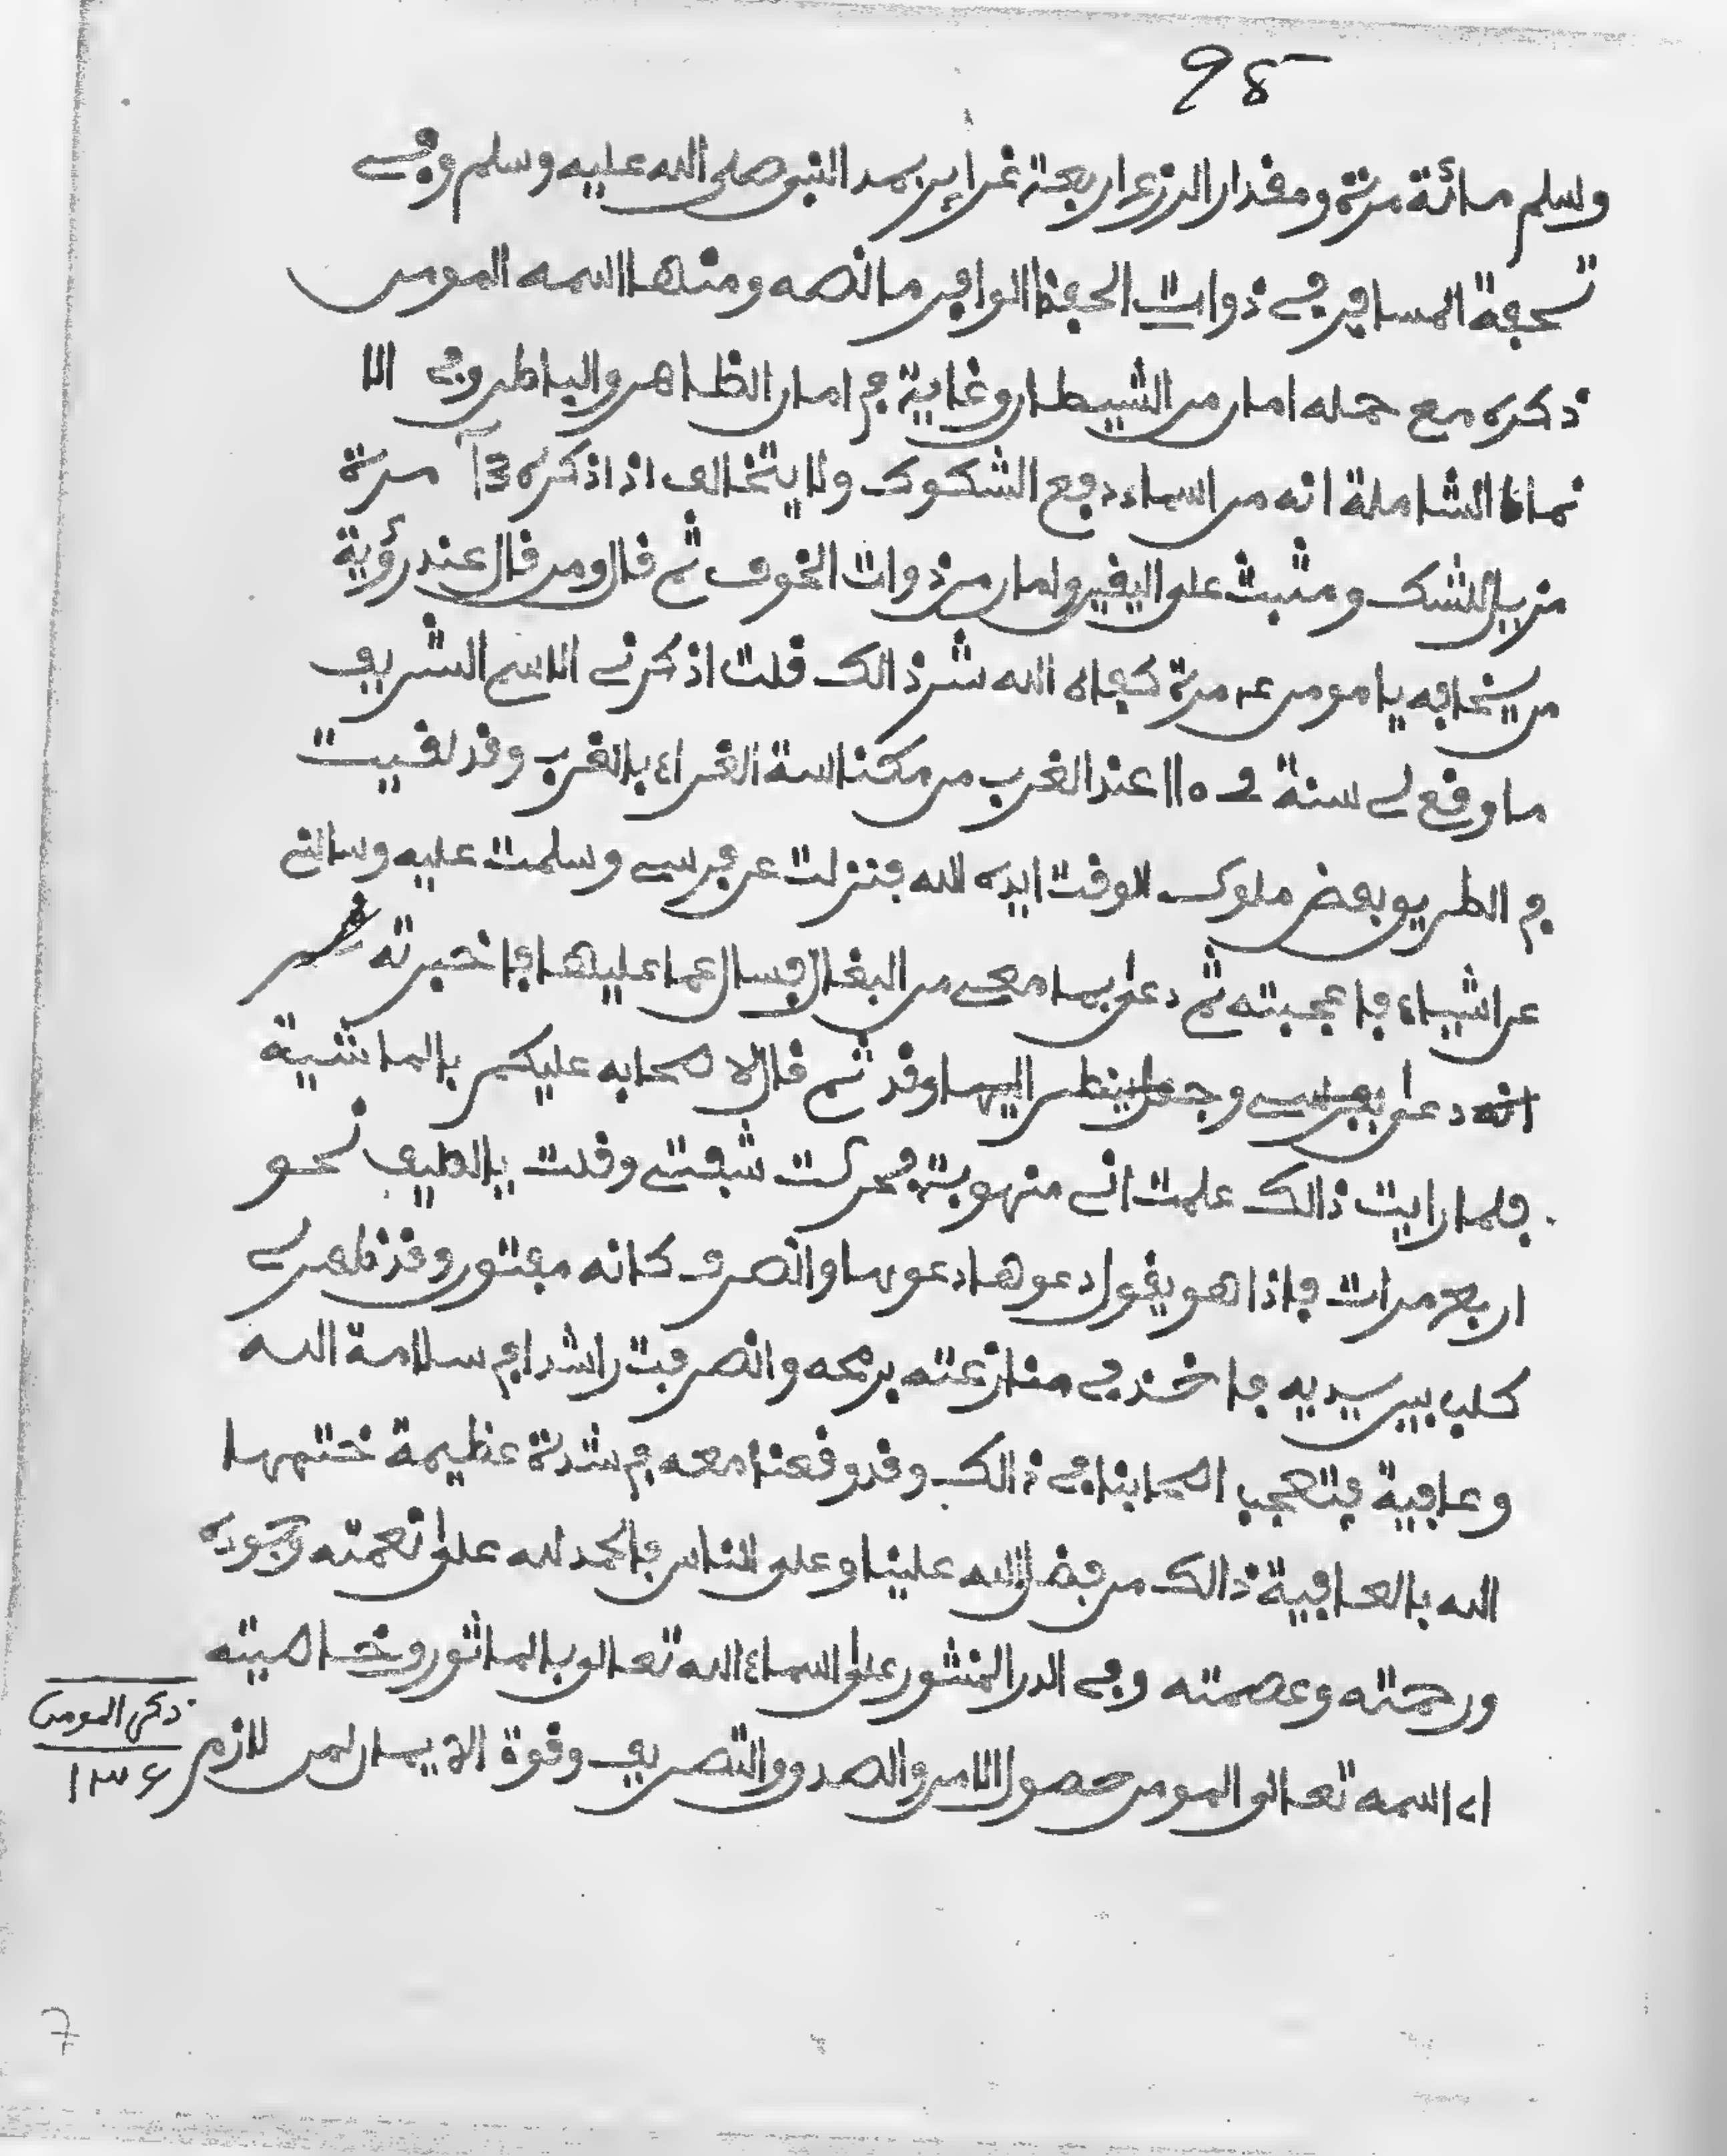 98
وسلم مائة مرة ومقدار الزرع اربعة غراير بمد النبي صلى الله عليه وسلم وفي
تحفة المسافر في ذوات الحفظ الوافر ما نصه ومنها اسمه المومن
ذكره مع حمله امان من الشيطان وغاية في امان الظاهر والباطن وفي الا
نماط الشاملة انه من اسماء دفع الشكوك ولا يتخالف اذا ذكره 136 مرة
مزيل للشك ومثبت على اليقين وامان من ذوات الخوف ثم قال ومن قال عند رؤية
من يخافه يا مومن مرة كفاه الله شر ذالك قلت اذكرني الاسم الشريف
ما وقع لي سنة عند الغرب من مكناسة الغراء بالغرب وقد لقيت
في الطريق بعض ملوك الوقت ايده الله فنزلت عن فرسي وسلمت عليه وسالني
عن اشياء فاعجبته ثم دعى بما معي من البغال فسال عما عليها فاخبرته
انه دعى بفرسي وجعل ينظر اليها وقد ثم قال لاصحابه عليكم بالماشية
فلما رايت ذالك علمت اني منهوبة فحركت شفتي وقلت يا لطيف نحو
اربع مرات فاذا هو يقول دعوها دعوها وانصرف كانه مفتور وقد ظهر لي
كلب بين يديه فاخذ في منازعته برمحه وانصرفت راشدا في سلامة الله
وعافية فتعجب اصحابنا في ذالك وقد وقعنا معه في شدة عظيمة ختمها
الله بالعافية ذالك من فضل الله علينا وعلى الناس فالحمد لله على نعمته وجوده
ورحمته وعصمته وفي الدر المنثور على اسماء الله تعالى بالماثور وخاصيته
اي اسمه تعالى المومن حصول الامن والصدق والتصريف وقوة الايمان لمن لازم
ذكر المومن
١٣٦
7